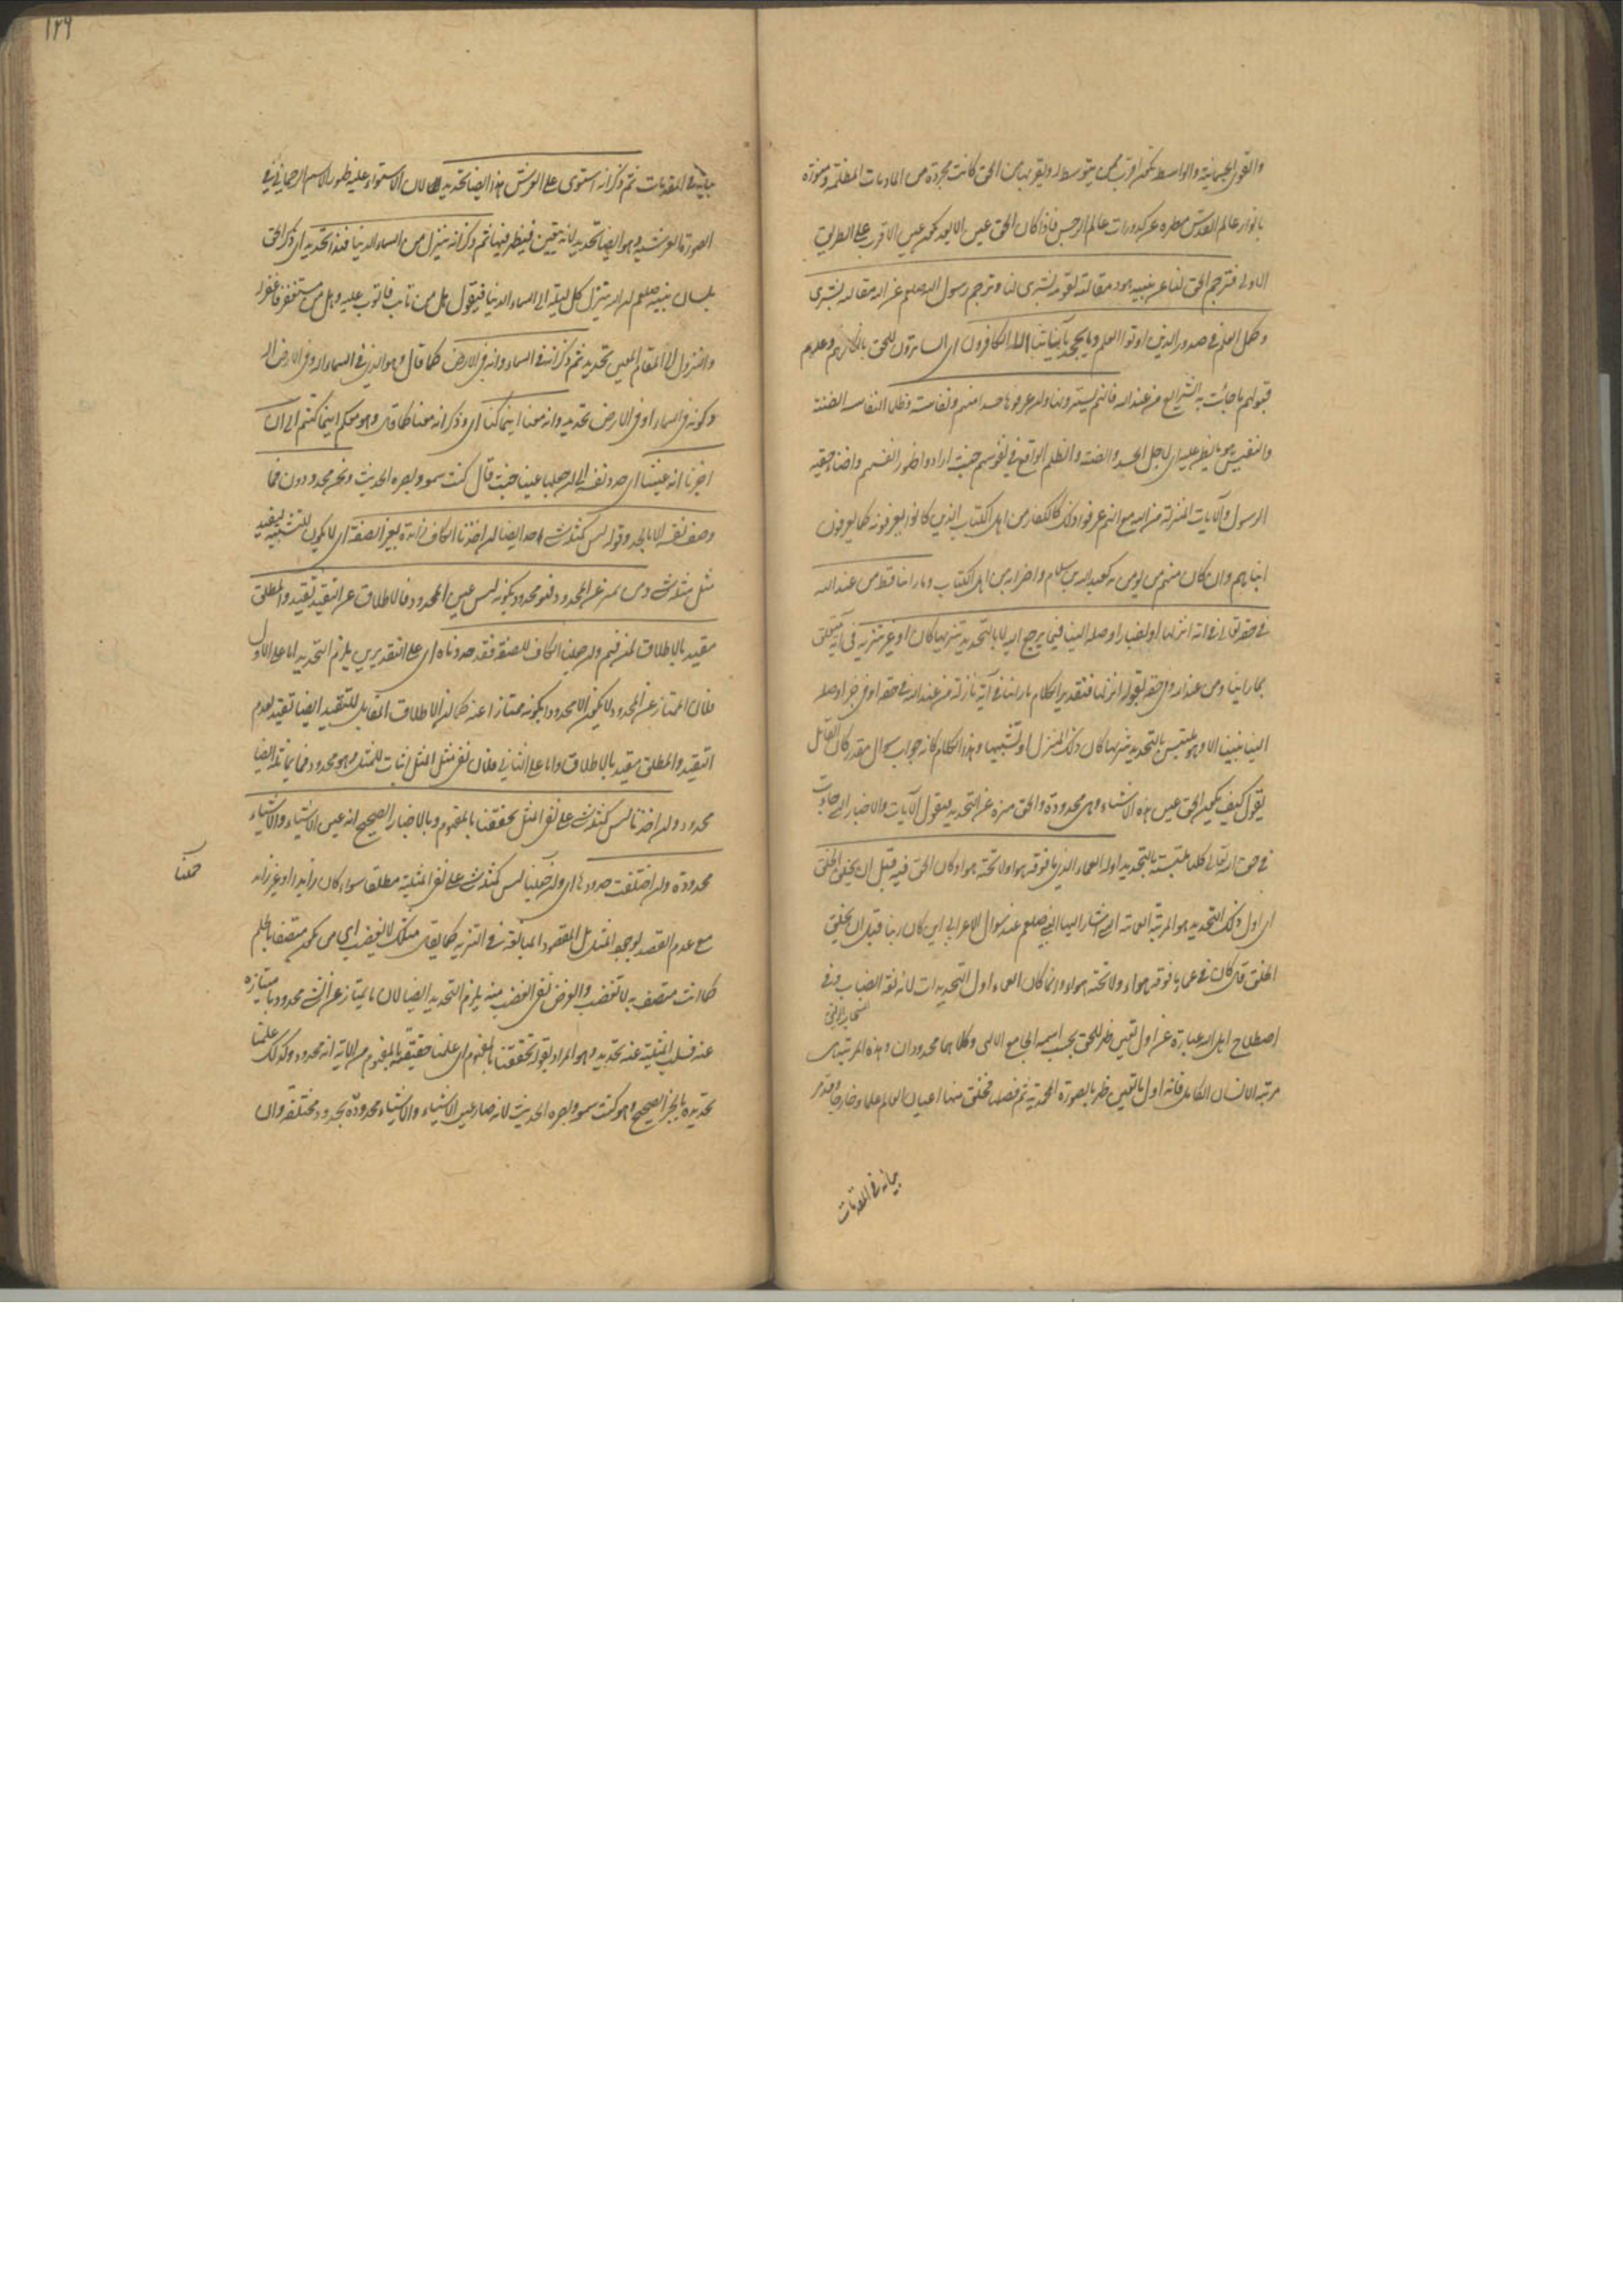 والقوى الجسمانية والواسطة تكون اقرب ممن يتوسط له وليقربها من الحق كانت مجردة من الماديات المظلمة ومنورة
بانوار عالم القدس مطهرة عن كدورات عالم الرجس فاذا كان الحق عين الابعد يكون عين الاقرب على الطريق
الاولى فترجم الحق لنا عن نبيه هود مقالته لقومه بشرى لنا وترجم رسول الله صلعم عن الله مقالته بشرى
وكمل العلم في صدور الذين اوتوا العلم وما يجحد بآياتنا الا الكافرون اى الساترون للحق بانكارهم وعدم
قبولهم ما جاءت به الشرايع من عند الله فانهم يسترونها وان عرفوها حسدا منهم ونفاسة وظلما النفاسة الضنة
والنفيس هو ما يضن عليه اى لاجل الحسد والضنة والظلم الواقع في نفوسهم حيث ارادوا ظهور انفسهم واخفاء حقية
الرسول والآيات المنزلة من الله مع انهم عرفوا ذلك كالكفار من اهل الكتاب الذين كانوا يعرفونه كما يعرفون
ابناءهم وان كان منهم من يومن به كعبد الله بن سلام واضرابه من اهل الكتاب وما راينا قط من عند الله
في حقه تعالى في آية انزلها او اخبار اوصله الينا فيما يرجع اليه الا بالتحديد تنزيها كان او غير تنزيه في آية متعلق
بما راينا ومن عند الله وفي حقه بقوله انزلها فتقدير الكلام ما راينا في آية نازلة من عند الله في حقه او في خبر اوصله
الينا نبينا الا وهو ملتبس بالتحديد تنزيها كان ذلك المنزل او تشبيها وهذا الكلام كانه جواب سوال مقدر كان القائل
يقول كيف يكون الحق عين هذه الاشياء وهى محدودة والحق منزه عن التحديد فيقول الآيات والاخبار التى جاءت
في حق الله تعالى كلها ملتبسة بالتحديد اوله العماء الذى ما فوقه هواء وما تحته هواء وكان الحق فيه قبل ان يخلق الخلق
اى اول ذلك التحديد هو المرتبة العمائية التى اشار اليها النبي صلعم عند سوال الاعرابي اين كان ربنا قبل ان يخلق
الخلق قال كان في عماء ما فوقه هواء ولا تحته هواء وانما كان العماء اول التحديدات لانه لغة الضباب وفى
السحاب الرقيق
اصطلاح اهل الله عبارة عن اول تعين ظهر للحق بحسب اسمه الجامع الالهى وكلاهما محدودان وهذه المرتبة هى
مرتبة الانسان الكامل فانه اول ما تعين ظهر بالصورة المحمدية ثم فصله فخلق منها اعيان العالم علما وخارجا وقد مر
بيانه في المقدمات
١٢٩
بيانه في المقدمات ثم ذكر انه استوى على العرش فهذا ايضا تحديد لان الاستواء عليه ظهور الاسم الرحماني في
الصورة العرشية وهو ايضا تحديد لانه تعين فيظهر فيها ثم ذكر انه ينزل من السماء الدنيا فهذا تحديد اى ذكر الحق
بلسان نبيه صلعم ان الله ينزل كل ليلة الى السماء الدنيا فيقول هل من تائب فاتوب عليه وهل من مستغفر فاغفر له
والنزول الى المقام المعين تحديد ثم ذكر انه في السماء وانه في الارض كما قال وهو الذى في السماء اله وفى الارض اله
وكونه في السماء او في الارض تحديد وانه معنا اينما كنا اى وذكر انه معنا كما قال وهو معكم اينما كنتم الى ان
اخبرنا انه عيننا اى حدد نفسه الى ان جعلها عيننا حيث قال كنت سمعه وبصره الحديث ونحن محدودون فما
وصف نفسه الا بالحد وقوله ليس كمثله شئ حد ايضا ان اخذنا الكاف زائدة لغير الصفة اى لا يكون للتشبيه ليفيد
مثل مثله شئ ومن تميز عن المحدود فهو محدود بكونه ليس عين المحدود فالاطلاق عن التقيد تقييد والمطلق
مقيد بالاطلاق لمن فهم وان جعلنا الكاف للصفة فقد حددناه اى على التقديرين يلزم التحديد اما على الاول
فلان الممتاز عن المحدود لا يكون الا محدودا بكونه ممتازا عنه كما ان الاطلاق المقابل للتقييد ايضا تقييد بعدم
التقييد والمطلق مقيد بالاطلاق واما على الثاني فلان نفى مثل المثل اثبات للمثل وهو محدود فما يماثله ايضا
محدود وان اخذنا ليس كمثله شئ على نفى المثل تحققنا بالمفهوم وبالاخبار الصحيح انه عين الاشياء والاشياء
محدودة وان اختلفت حدودها اى وان حملنا ليس كمثله شئ على نفى المثلية مطلقا سواء كان زايدا او غير زايد
حملنا
مع عدم القصد لوجود المثل بل المقصود المبالغة في التنزيه كما يقال مثلك لا يغضب اى من يكون متصفا بالحلم
كما انت متصف به لا يغضب والغرض نفى الغضب منه يلزم التحديد ايضا لان ما يمتاز عن الشئ محدود بامتيازه
عنه فسلب المثلية عنه تحديد وهو المراد بقوله تحققنا بالمفهوم اى علمنا حقيقة بالمفهوم من الآية انه محدود وكذلك علمنا
تحديده بالخبر الصحيح وهو كنت سمعه وبصره الحديث لانه صار عين الاشياء والاشياء محدودة بحدود مختلفة وان